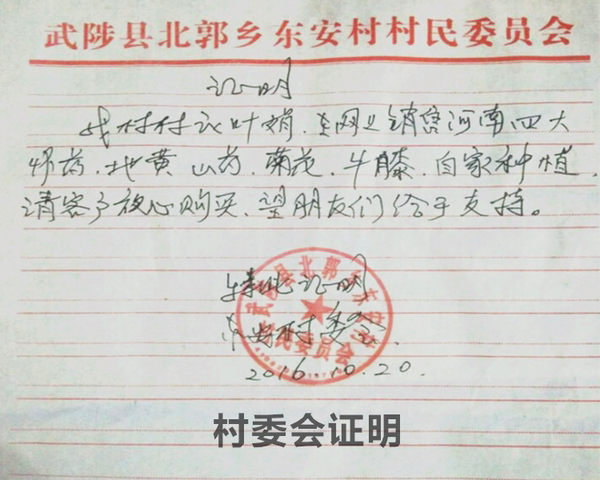 武陟县北郭乡东安村村民委员会
证明
我村村民叶娟,在网上销售河南四大
怀药,地黄,山药,菊花,牛膝,自家种植,
请客户放心购买,望朋友们给予支持。
特此证明
东安村委会.
武陟县北郭乡东安村
村民委员会
2016.10.20.
村委会证明